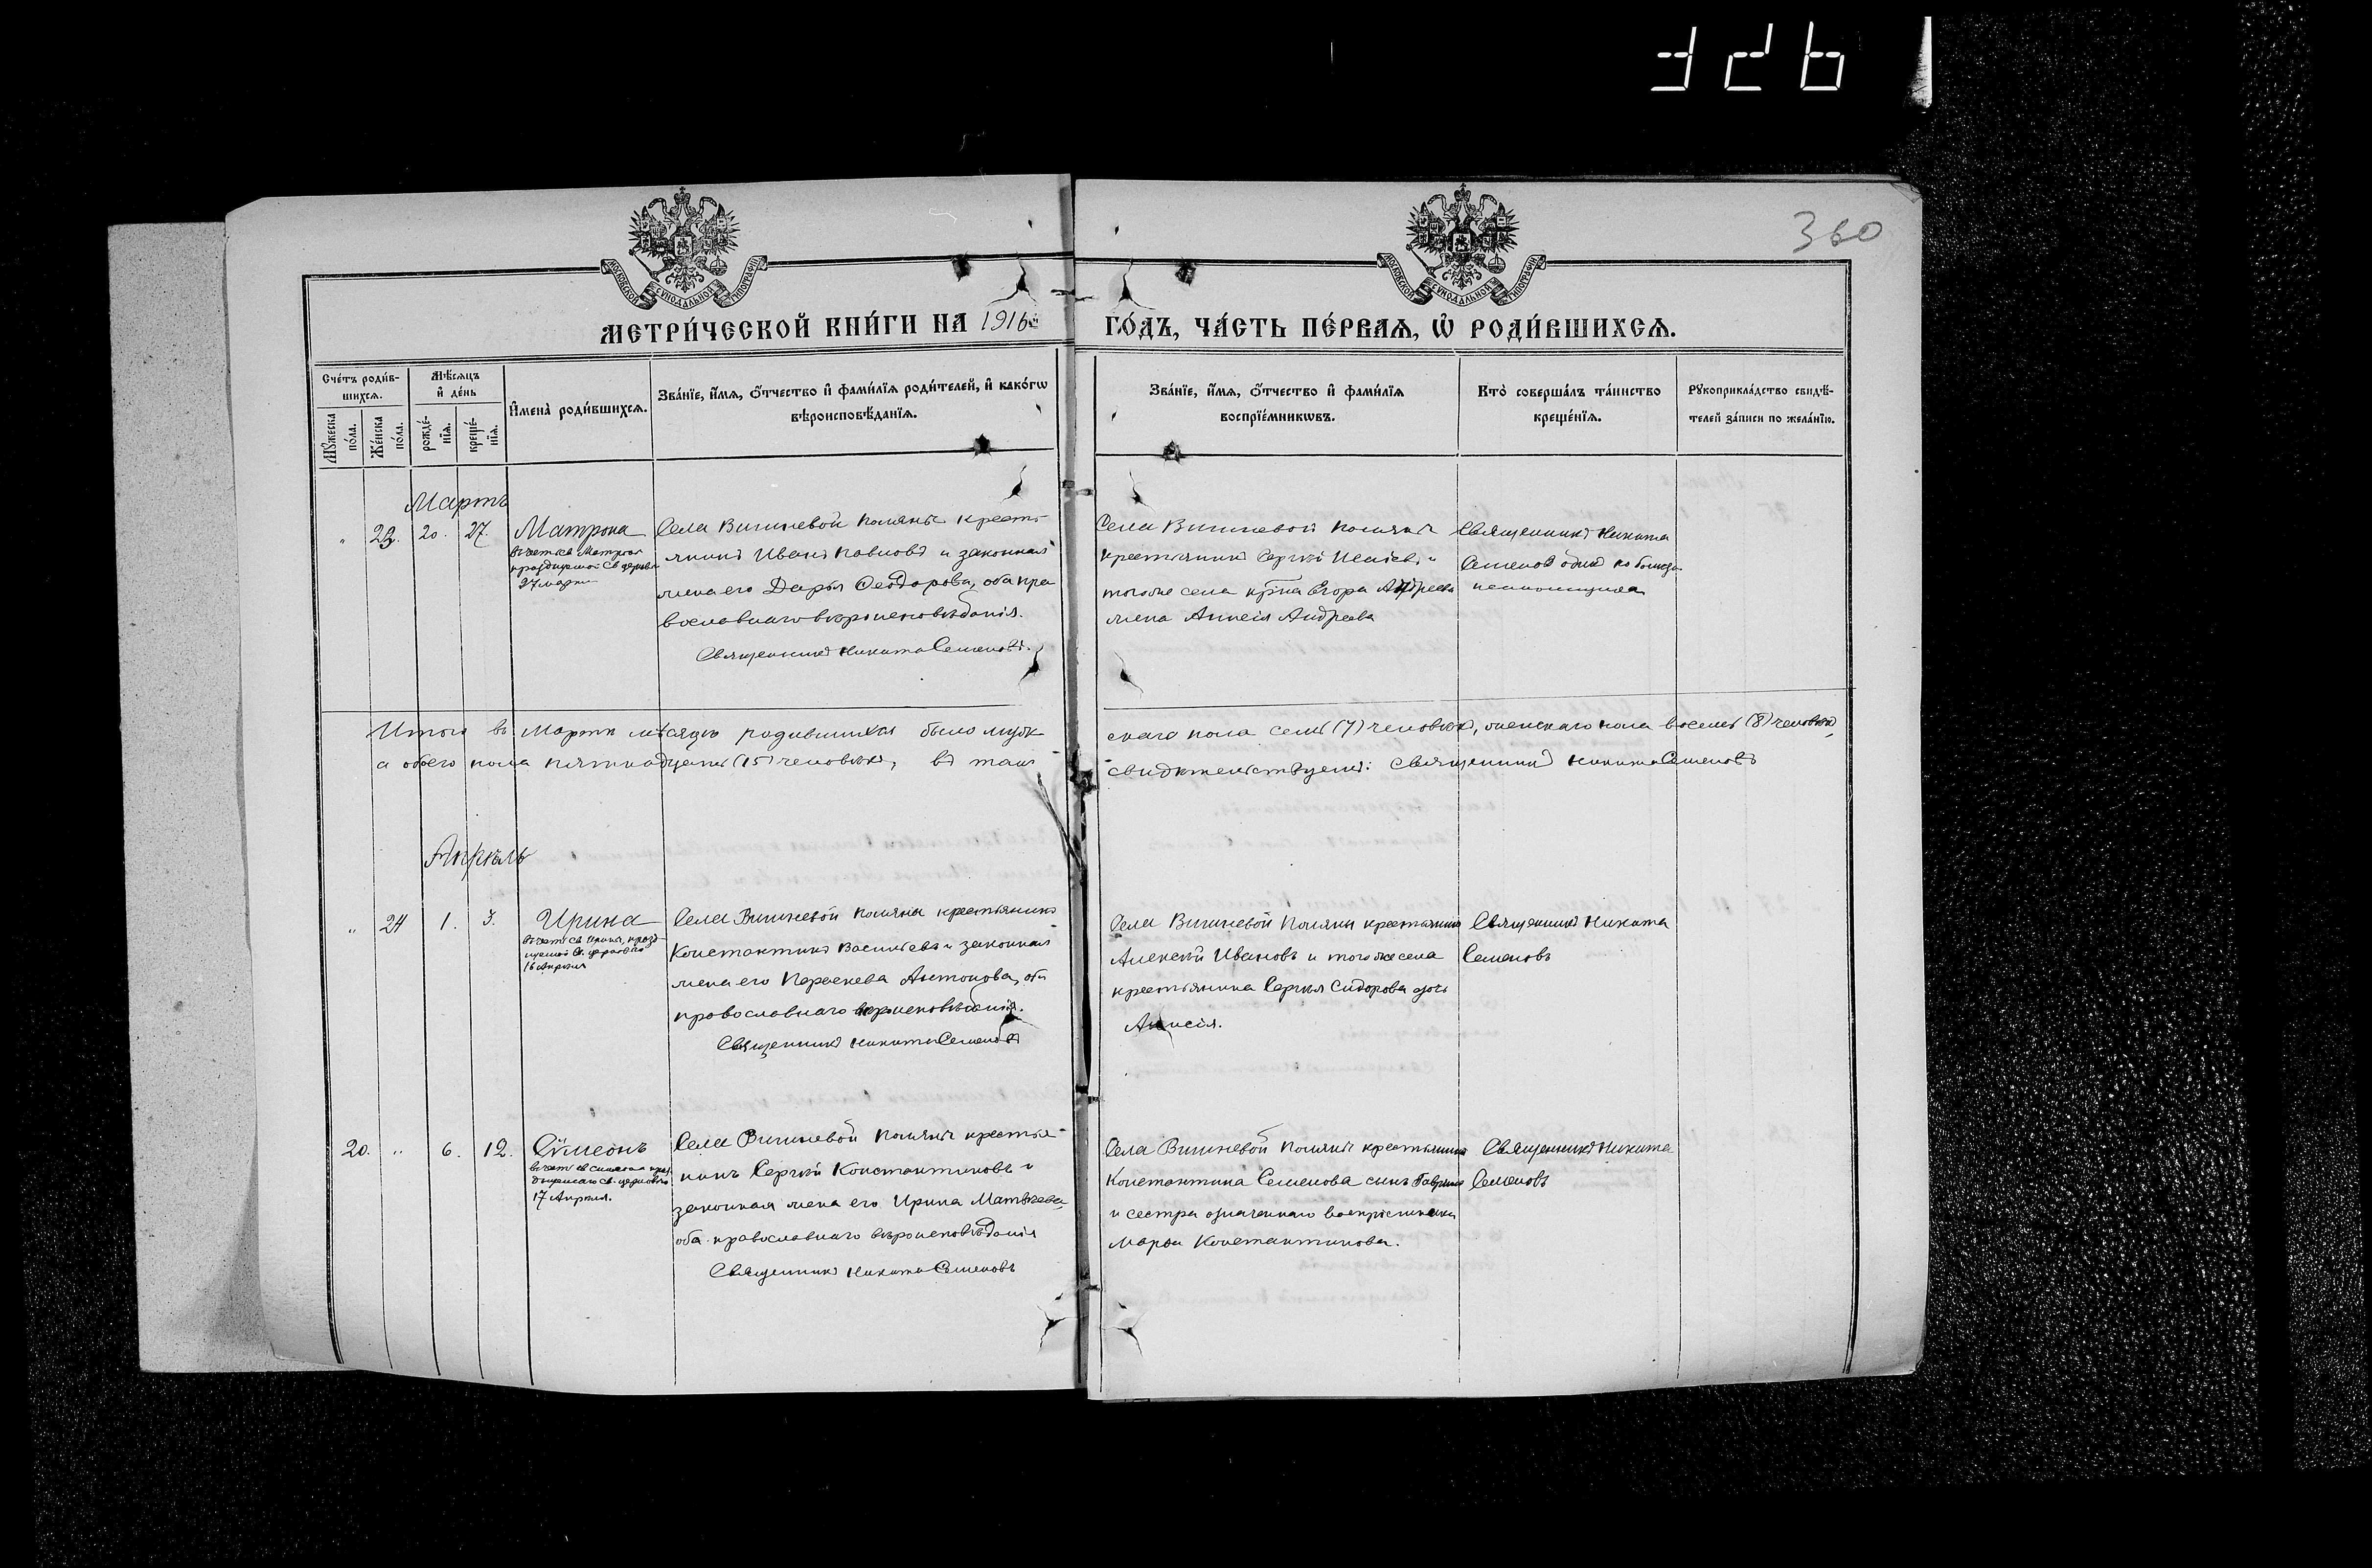 326
360
МОСКОВСКОЙ СѴНОДАЛЬНОЙ ТИПОГРАФІИ
МОСКОВСКОЙ СѴНОДАЛЬНОЙ ТИПОГРАФІИ
МЕТРИ́ЧЕСКОЙ КНИ́ГИ НА 1916й
ГО́ДЪ, ЧА́СТЬ ПЕ́РВАѦ, Ѽ РОДИ́ВШИХСѦ.
Сче́тъ роди́в-
шихсѧ.
Мѣ́сѧцъ
и҆ де́нь
Мꙋ́жеска
по́ла.
Же́нска
по́ла.
рожде́-
нїѧ.
креще́-
нїѧ.
И҆мена̀ роди́вшихсѧ.
Зва́нїе, и҆́мѧ, ѻ҆́тчество и҆ фами́лїѧ роди́телей, и҆ како́гѡ
вѣроисповѣ́данїѧ.
Зва́нїе, и҆́мѧ, ѻ҆́тчество и҆ фами́лїѧ
воспрїе́мникѡвъ.
Кто̀ соверша́лъ та́инство
креще́нїѧ.
Рꙋкоприкла́дство свидѣ́-
телей за́писи по жела́нїю.
Мартъ
" 23. 20. 27. Матрона
въ честь св. Матроны
празднуемой Св. церковью
27 марта
Села Вишневой Поляны кресть-
янинъ Иванъ Павловъ и законная
жена его Дарья Ѳеодорова, оба пра
вославнаго вѣроисповѣданія.
Священникъ Никита Семеновъ.
Села Вишневой Поляны
крестьянинъ Сергѣй и
тогоже села кр-на Егора Андреева
жена Анисія Андреева
Священникъ Никита
Семеновъ одинъ по болѣзни
псаломщика
Итого въ Мартѣ мѣсяцѣ родившихся было муж-
скаго пола семь (7) человѣкъ, женскаго пола восемь (8) человѣкъ,
а обоего пола пятнадцать (15) человѣкъ, въ томъ
свидѣтельствуемъ: Священникъ Никита Семеновъ
Апрѣль
" 24 1. 3. Ирина
въ честь св. Ирины, празд-
нуемой Св. церковью
16 Апрѣля
Села Вишневой Поляны крестьянинъ
Константинъ Васильевъ и законная
жена его Параскева Антонова, оба
православнаго вѣроисповѣданія.
Священникъ Никита Семеновъ
Села Вишневой Поляны крестьянинъ
Алексѣй Ивановъ и тогоже села
крестьянина Сергѣя Сидорова дочь
Анисія.
Священникъ Никита
Семеновъ
20. " 6. 12. Сѵмеонъ
въ честь св. Симеона праз
днуемаго Св. церковью
17 Апрѣля.
Села Вишневой Поляны крестья-
нинъ Сергѣй Константиновъ и
законная жена его Ирина Матвѣева,
оба православнаго вѣроисповѣданія
Священникъ Никита Семеновъ
Села Вишневой Поляны крестьянина
Константина Семенова сынъ Гавріилъ
и сестра означеннаго воспріемника
Марѳа Константинова.
Священникъ Никита
Семеновъ